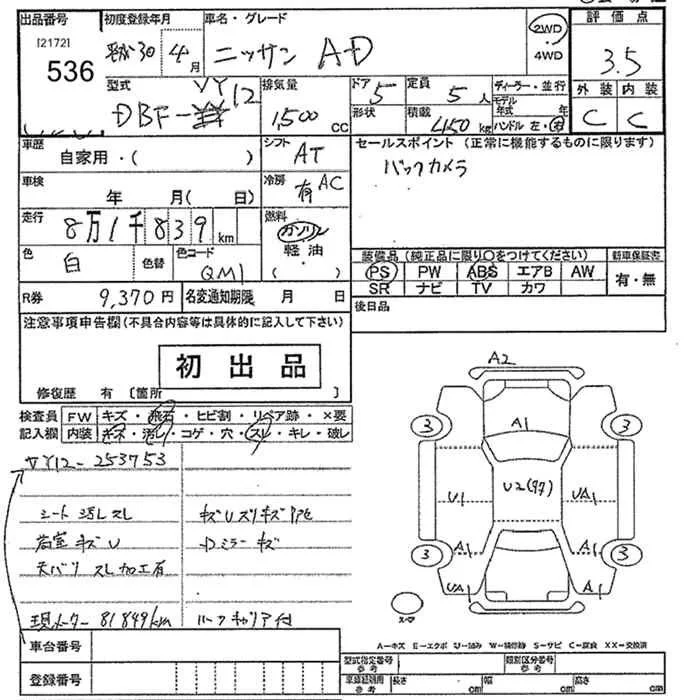 出品番号 初度登録年月 車名・グレード 評価点
[2172]
536 平成30年4月 ニッサン AD 2WD・4WD 3.5
型式 排気量 ドア 定員 ディーラー・並行 外装 内装
DBF-VY12 1,500cc 5 5人 モデル年式 年 C C
形状 積載 450kg ハンドル 左・右
車歴 シフト セールスポイント (正常に機能するものに限ります)
自家用・( ) AT バックカメラ
車検 冷房
年 月( 日) 有 AC
走行 燃料
8万1千839km ガソリン
軽油
( )
色 色替 色コード 装備品 (純正品に限り○をつけてください) 新車保証書
白 QM1 PS PW ABS エアB AW 有・無
SR ナビ TV カワ
R券 9,370円 名変通知期限 月 日 後日品
注意事項申告欄(不具合内容等は具体的に記入して下さい)
初出品
修復歴 有 [箇所 ]
検査員 FW キズ・飛石・ヒビ割・リペア跡・×要
記入欄 内装 キズ・汚レ・コゲ・穴・スレ・キレ・破レ
VY12-253753
シート 汚レ スレ キズUズリキズP他
荷室 キズ U Dミラーキズ
天バリ スレ 加工有
現メーター 81849km ルーフキャリア付
車台番号
登録番号
A2
3 A1 3
U1 U2(97) UA1
3 A1 A1 3
UA1 A1
スペア
A-キズ E-エクボ U-凹み W-補修跡 S-サビ C-腐食 XX-交換済
型式指定番号 類別区分番号
参考 参考
車庫証明用 長さ 幅 高さ
参考 cm cm cm